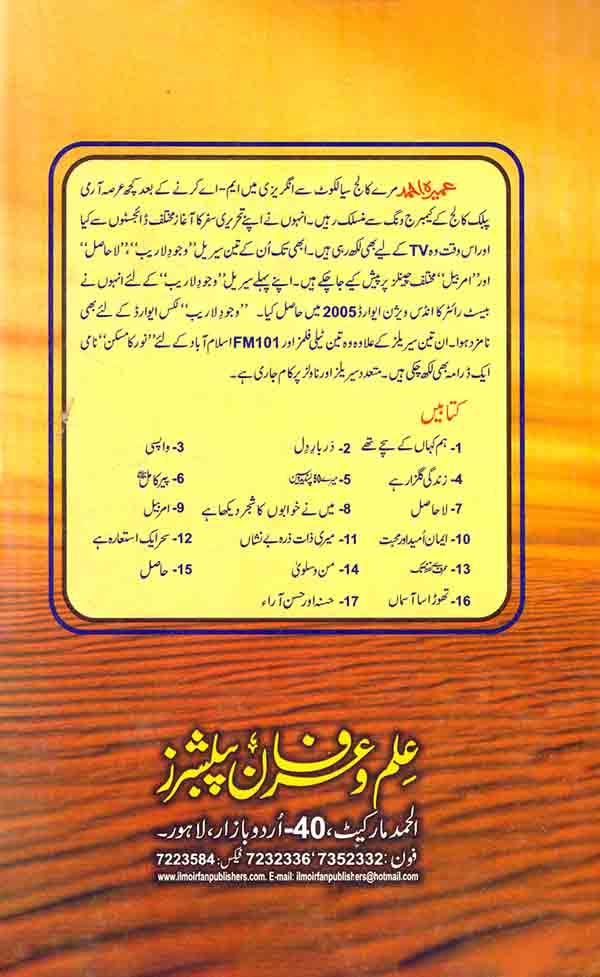 عمیرہ احمد مرے کالج سیالکوٹ سے انگریزی میں ایم-اے کرنے کے بعد کچھ عرصہ آرمی
پبلک کالج کے کیمبرج ونگ سے منسلک رہیں۔ انہوں نے اپنے تحریری سفر کا آغاز مختلف ڈائجسٹوں سے کیا
اور اس وقت وہ TV کے لیے بھی لکھ رہی ہیں۔ ابھی تک اُن کے تین سیریل ”وجودِ لاریب“، ”لا حاصل“
اور ”امربیل“ مختلف چینلز پر پیش کیے جا چکے ہیں۔ اپنے پہلے سیریل ”وجودِ لاریب“ کے لئے انہوں نے
بیسٹ رائٹر کا انڈس ویژن ایوارڈ 2005 میں حاصل کیا۔ ”وجودِ لاریب“ لکس ایوارڈ کے لئے بھی
نامزد ہوا۔ ان تین سیریلز کے علاوہ وہ تین ٹیلی فلمز اور FM101 اسلام آباد کے لئے ”نور کا مسکن“ نامی
ایک ڈرامہ بھی لکھ چکی ہیں۔ متعدد سیریلز اور ناولز پر کام جاری ہے۔
کتابیں
1- ہم کہاں کے سچے تھے 2- دَربارِ دِل 3- واپسی
4- زندگی گلزار ہے 5- میرے 50 پسندیدہ سین 6- پیرِ کاملﷺ
7- لا حاصل 8- میں نے خوابوں کا شجر دیکھا ہے 9- امربیل
10- ایمان اُمید اور محبت 11- میری ذات ذرہ بے نشاں 12- سحر ایک استعارہ ہے
13- 14- من و سلویٰ 15- حاصل
16- تھوڑا سا آسماں 17- حسنہ اور حسن آراء
علم و عرفان پبلشرز
الحمد مارکیٹ، 40-اُردو بازار، لاہور۔
فون: 7352332، 7232336 فیکس: 7223584
www.ilmoirfanpublishers.com. E-mail: ilmoirfanpublishers@hotmail.com